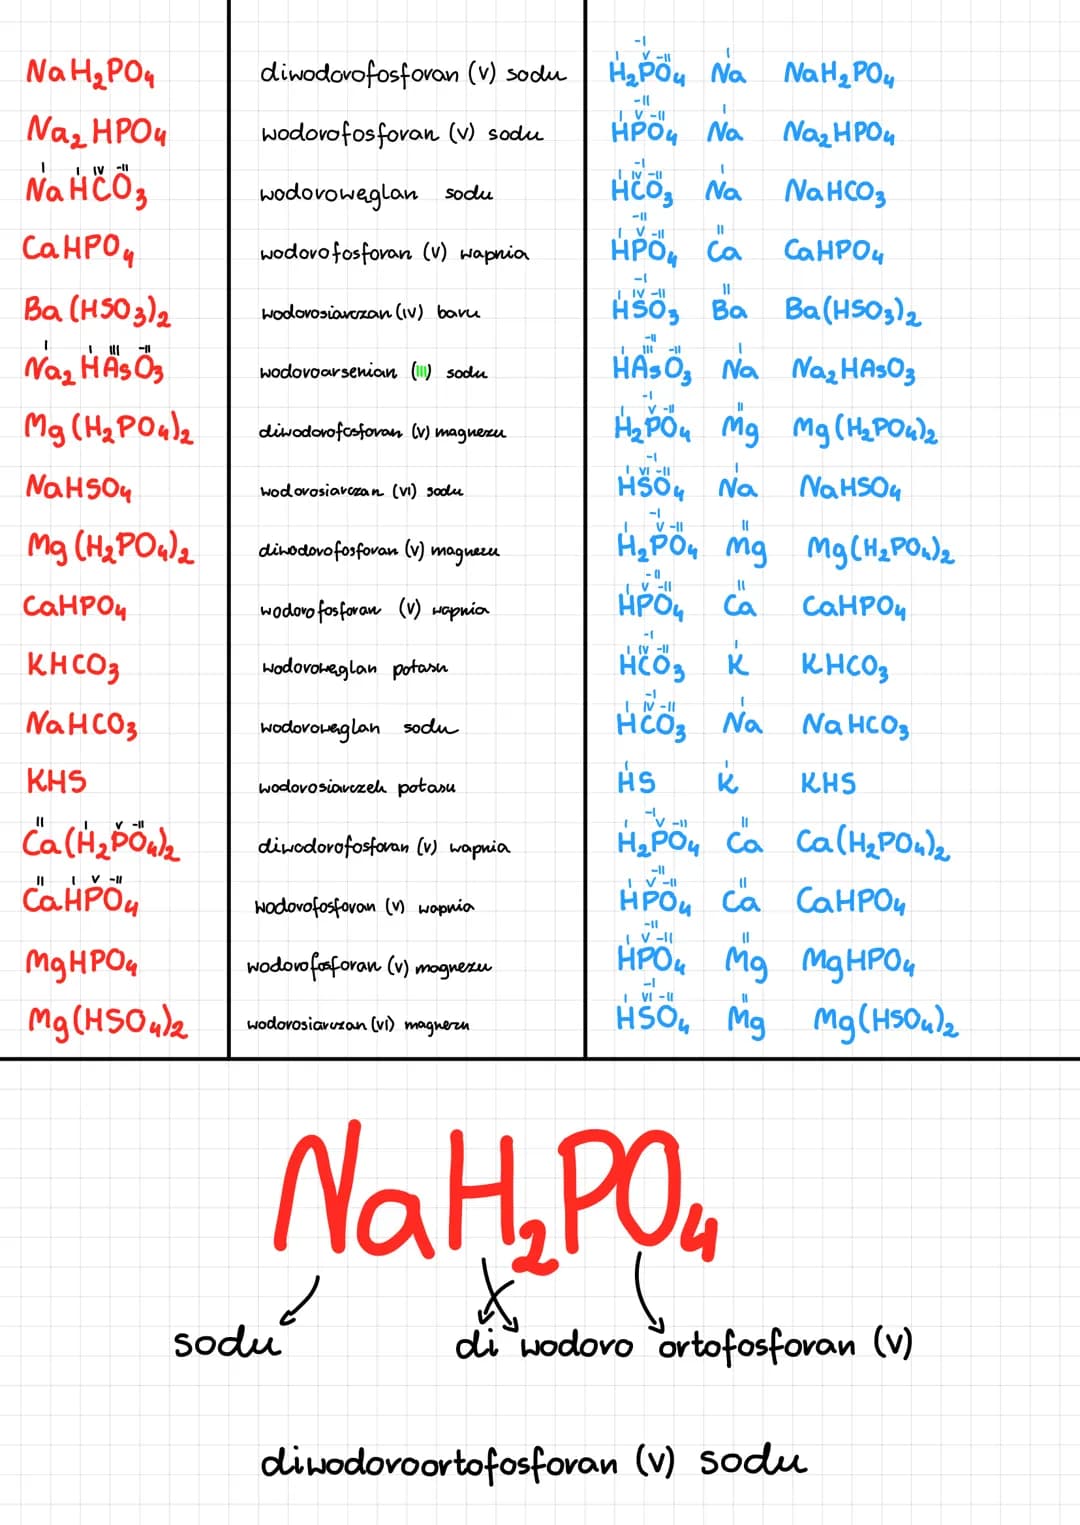 NaH₂PO₄ diwodorofosforan (V) sodu -I I V -II H₂PO₄ I Na NaH₂PO₄
Na₂HPO₄ wodorofosforan (V) sodu -II I V -II HPO₄ I Na Na₂HPO₄
I I IV -II NaHCO₃ wodorowęglan sodu -I I IV -II HCO₃ I Na NaHCO₃
CaHPO₄ wodorofosforan (V) wapnia -II I V -II HPO₄ II Ca CaHPO₄
Ba(HSO₃)₂ wodorosiarczan (IV) baru -I I IV -II HSO₃ II Ba Ba(HSO₃)₂
I I III -II Na₂HAsO₃ wodoroarsenian (III) sodu -II I III -II HAsO₃ I Na Na₂HAsO₃
Mg(H₂PO₄)₂ diwodorofosforan (V) magnezu -I I V -II H₂PO₄ II Mg Mg(H₂PO₄)₂
NaHSO₄ wodorosiarczan (VI) sodu -I I VI -II HSO₄ I Na NaHSO₄
Mg(H₂PO₄)₂ diwodorofosforan (V) magnezu -I I V -II H₂PO₄ II Mg Mg(H₂PO₄)₂
CaHPO₄ wodorofosforan (V) wapnia -II I V -II HPO₄ II Ca CaHPO₄
KHCO₃ wodorowęglan potasu -I I IV -II HCO₃ I K KHCO₃
NaHCO₃ wodorowęglan sodu -I I IV -II HCO₃ I Na NaHCO₃
KHS wodorosiarczek potasu I HS I K KHS
II I V -II Ca(H₂PO₄)₂ diwodorofosforan (V) wapnia -I I V -II H₂PO₄ II Ca Ca(H₂PO₄)₂
II I V -II CaHPO₄ wodorofosforan (V) wapnia -II I V -II HPO₄ II Ca CaHPO₄
MgHPO₄ wodorofosforan (V) magnezu -II I V -II HPO₄ II Mg MgHPO₄
Mg(HSO₄)₂ wodorosiarczan (VI) magnezu -I I VI -II HSO₄ II Mg Mg(HSO₄)₂
NaH₂PO₄
sodu di wodoro ortofosforan (V)
diwodoroortofosforan (V) sodu